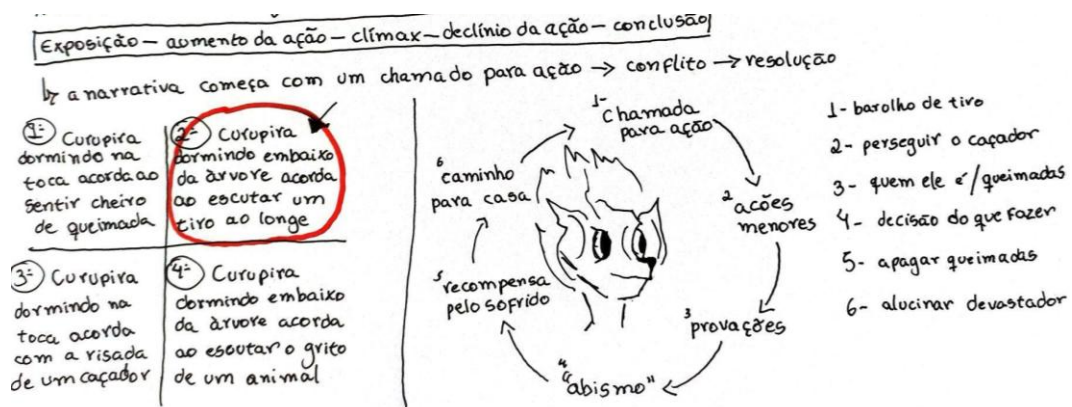 Exposição – aumento da ação – clímax – declínio da ação – conclusão
↳ a narrativa começa com um chamado para ação → conflito → resolução
1ª Curupira
dormindo na
toca acorda ao
sentir cheiro
de queimada
2ª Curupira
dormindo embaixo
da àrvore acorda
ao escutar um
tiro ao longe
3ª Curupira
dormindo na
toca acorda
com a risada
de um caçador
4ª Curupira
dormindo embaixo
da àrvore acorda
ao escutar o grito
de um animal
1- Chamada
para ação
2 acões
menores
3 provações
4 "abismo"
5 recompensa
pelo sofrido
6 caminho
para casa
1- barolho de tiro
2- perseguir o caçador
3- quem ele é/queimadas
4- decisão do que fazer
5- apagar queimadas
6- alucinar devastador